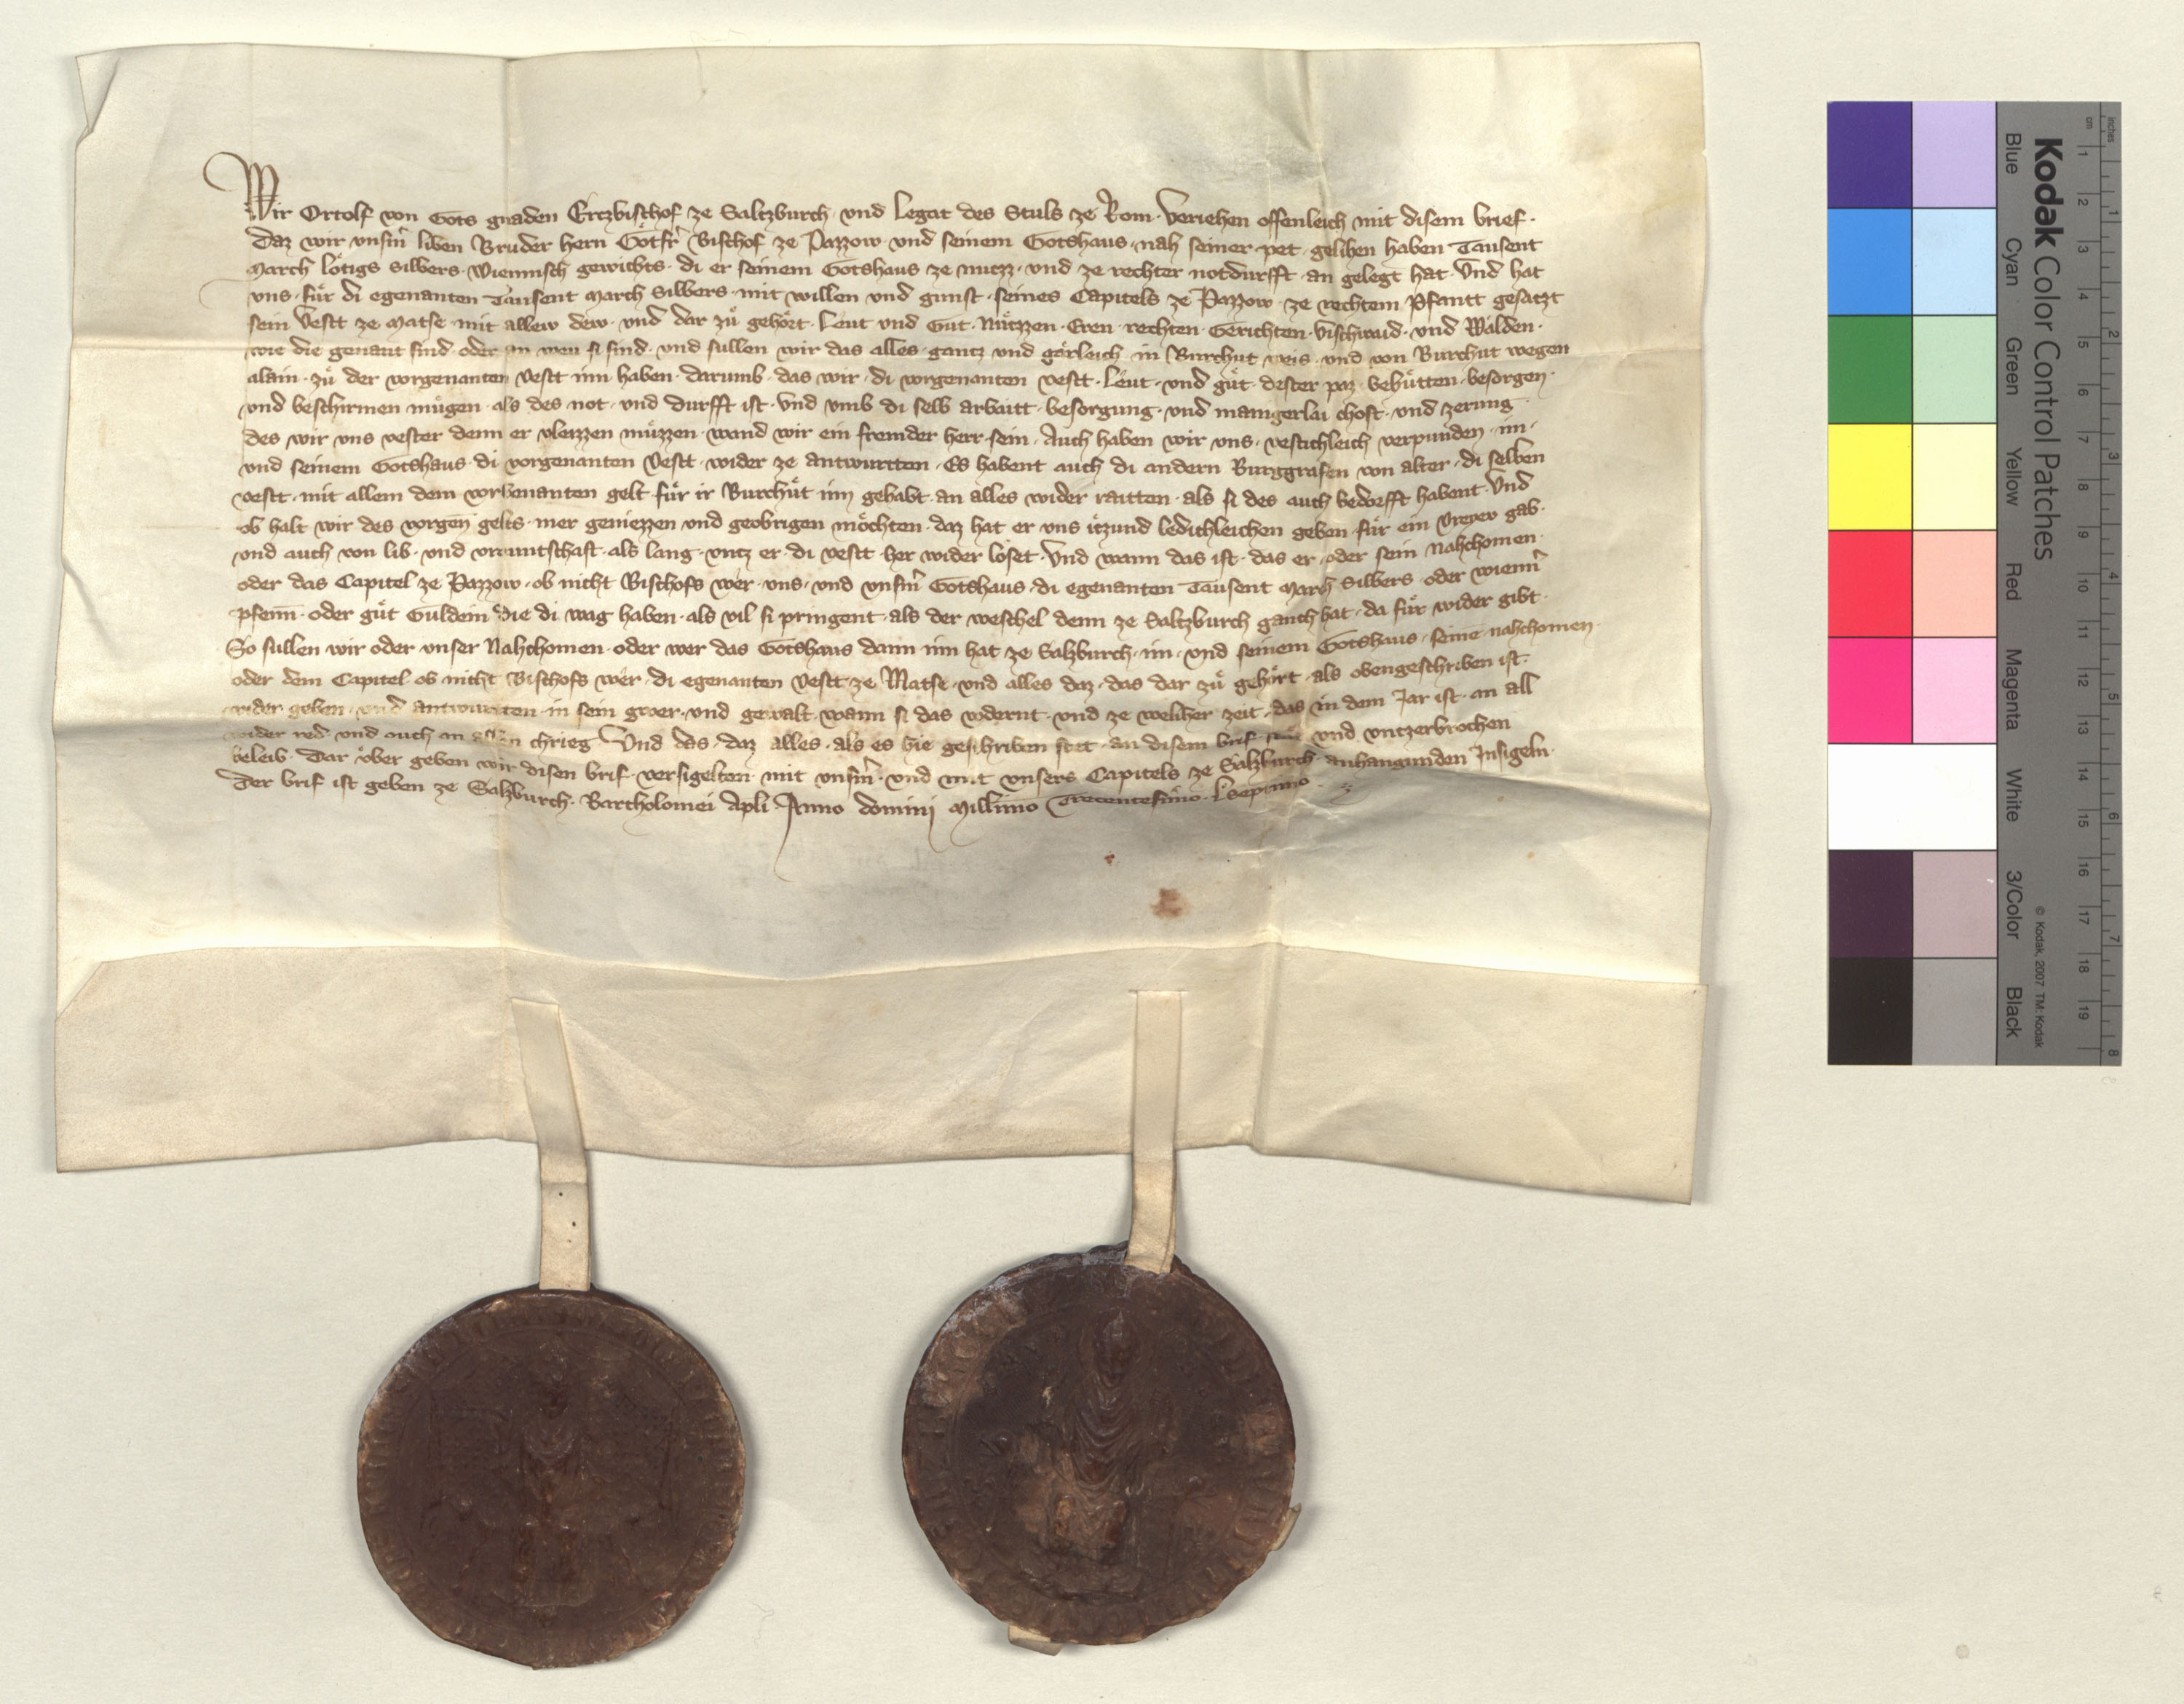 Wir Ortolf von Gots gnaden Ertzbischof ze Saltzburch · vnd Legat des Stuls ze Rom · veriehen offenleich mit disem brief ·
Daz wir vnserm liben Bruder hern Gotfr Bischof ze Pazzow · vnd seinem Gotshaus · nah seiner pet · gelihen haben Tausent
March lötigs Silbers · Wiennisch gewichts · di er seinem Gotshaus ze nutzz · vnd ze rechter notdurfft · an gelegt hat · Vnd hat
vns · für di egenanten Tausent March Silbers · mit willen vnd gunst · seines Capitels ze Pazzow · ze rechtem Pfantt gesatzt
sein Vestt ze Matse · mit allew dew · vnd dar zů gehört · Leut vnd Gut · Nützzen · Eren · rechten · Gerichten · Vischwaid · vnd Wälden ·
wie die genant sind · oder an wen si sind · vnd sullen wir das alles · gantz vnd gärleich · in Burchut weis · vnd von Burchut wegen
alain · zů der vorgenanten Vestt inn haben · darumb · das wir · di vorgenanten vestt · Leut · vnd gůt · dester paz · behůtten · besorgen ·
vnd beschirmen mügen · als des not · vnd durfft ist · Vnd vmb di selb arbaitt · besorgung · vnd manigerlai chost · vnd zerung ·
des wir vns vester denn er vleizzen müzzen · wand wir ein fremder herr sein · Auch haben wir vns · vestichleich verpunden · im ·
vnd seinem Gotshaus · di vorgenanten Vestt · wider ze antwurtten · Es habent auch di andern Burggrafen von alter · di selben
vestt · mit allem dem vorbenanten gelt · für ir Burchůt inn gehabt · an alles wider raitten · als si des auch bedorfft habent · Vnd
ob halt wir des vorgen gelts · mer geniezzen vnd geobrigen möchten · daz hat er vns itzund ledichleichen geben · für ein vreyew gab ·
vnd auch von lib · vnd vreuntschaft · als lang · vntz er · di vestt · her wider löset · Vnd wann das ist · das er · oder sein Nahchomen ·
oder das Capitel ze Pazzow · ob nicht Bischofs wer · vns · vnd vnserm Gotshaus · di egenanten Tausent March Silbers · oder wienn
pfenn · oder gůt Guldein die di wag haben · als vil si pringent · als der wechsel denn ze Saltzburch ganch hat · da für wider gibt ·
So sullen wir oder vnser Nahchomen · oder wer das Gotshaus dann inn hat ze Salzburch · im · vnd seinem Gotshaus · seinen nahchomen ·
oder dem Capitel · ob nicht Bischofs wër · di egenanten Vestt ze Matse · vnd alles daz · das dar zů gehört · als obengeschriben ist ·
wider geben · vnd antwurtten · in sein gwer · vnd gewalt · wann si das vodernt · vnd ze welher zeit · das in dem Jar ist · an all
wider red · vnd auch an allen chrieg · Vnd das · daz alles · als es hie geschriben stet · an disem brif stët vnd vntzerbrochen
beleib · Dar über geben wir disen brif · versigelten · mit vnserm · vnd mit vnsers Capitels ze Salzburch · anhangunden Insigeln ·
Der brif ist geben ze Salzburch · Bartholomei Apli · Anno domini Millimo Trecentesimo · Lseptimo ·
Kodak Color Control Patches
Blue Cyan Green Yellow Red Magenta White 3/Color Black
© Kodak, 2007 TM: Kodak
inches 1 2 3 4 5 6 7 8
cm 1 2 3 4 5 6 7 8 9 10 11 12 13 14 15 16 17 18 19